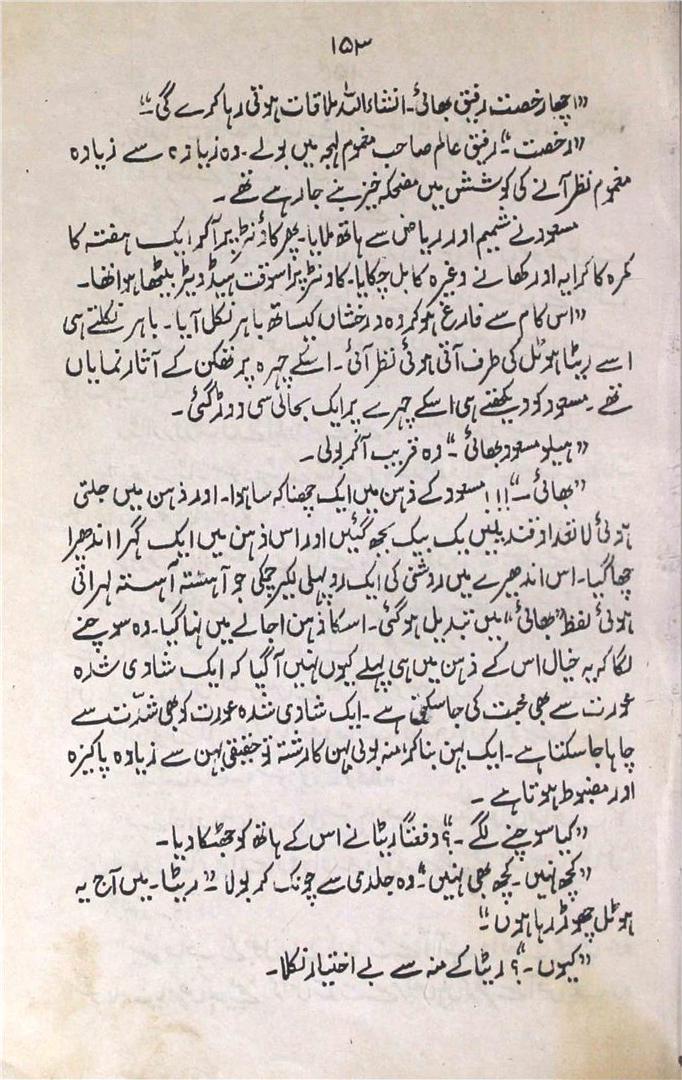 ۱۵۳
”اچھا رخصت رفیق بھائی۔ انشاء اللہ ملاقات ہوتی رہا کرے گی۔“
”رخصت“۔ رفیق عالم صاحب مغموم لہجہ میں بولے۔ وہ زیادہ سے زیادہ
مغموم نظر آنے کی کوشش میں مضحکہ خیز بنے جا رہے تھے۔
مسعود نے شمیم اور ریاض سے ہاتھ ملایا۔ پھر کاؤنٹر پر آکر ایک ہفتہ کا
کمرہ کا کرایہ اور کھانے وغیرہ کا بل چکایا۔ کاونٹر پر اسوقت ہیڈ ویٹر بیٹھا ہوا تھا۔
”اس کام سے فارغ ہوکر وہ درخشاں کیساتھ باہر نکل آیا۔ باہر نکلتے ہی
اسے ریٹا ہوٹل کی طرف آتی ہوئی نظر آئی۔ اسکے چہرہ پر تھکن کے آثار نمایاں
تھے۔ مسعود کو دیکھتے ہی اسکے چہرے پر ایک بحالی سی دوڑ گئی۔
”ہیلو مسعود بھائی“۔ وہ قریب آکر بولی۔
”بھائی۔“!!! مسعود کے ذہن میں ایک چھناکہ سا ہوا۔ اور ذہن میں جلتی
ہوئی لاتعداد قندیلیں یک بیک بجھ گئیں اور اس ذہن میں ایک گہرا اندھیرا
چھا گیا۔ اس اندھیرے میں روشنی کی ایک روپہلی لکیر چمکی جو آہستہ آہستہ لہراتی
ہوئی لفظ ”بھائی“ میں تبدیل ہوگئی۔ اسکا ذہن اجالے میں نہا گیا۔ وہ سوچنے
لگا کہ یہ خیال اس کے ذہن میں ہی پہلے کیوں نہیں آگیا کہ ایک شادی شدہ
عورت سے بھی محبت کی جاسکتی ہے۔ ایک شادی شدہ عورت کو بھی شدّت سے
چاہا جاسکتا ہے۔ ایک بہن بناکر، منہ بولی بہن کا رشتہ تو حقیقی بہن سے زیادہ پاکیزہ
اور مضبوط ہوتا ہے۔
”کیا سوچنے لگے۔؟“ دفعتاً ریٹا نے اس کے ہاتھ کو جھٹکا دیا۔
”کچھ نہیں۔ کچھ بھی نہیں“۔ وہ جلدی سے چونک کر بولا۔ ”ریٹا۔ میں آج یہ
ہوٹل چھوڑ رہا ہوں۔“
”کیوں۔؟“ ریٹا کے منہ سے بے اختیار نکلا۔